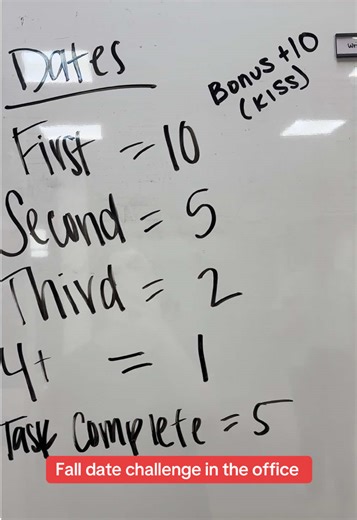 Dates
Bonus +10
(KISS)
First = 10
Second = 5
Third = 2
4+ = 1
Task Complete = 5
Fall date challenge in the office